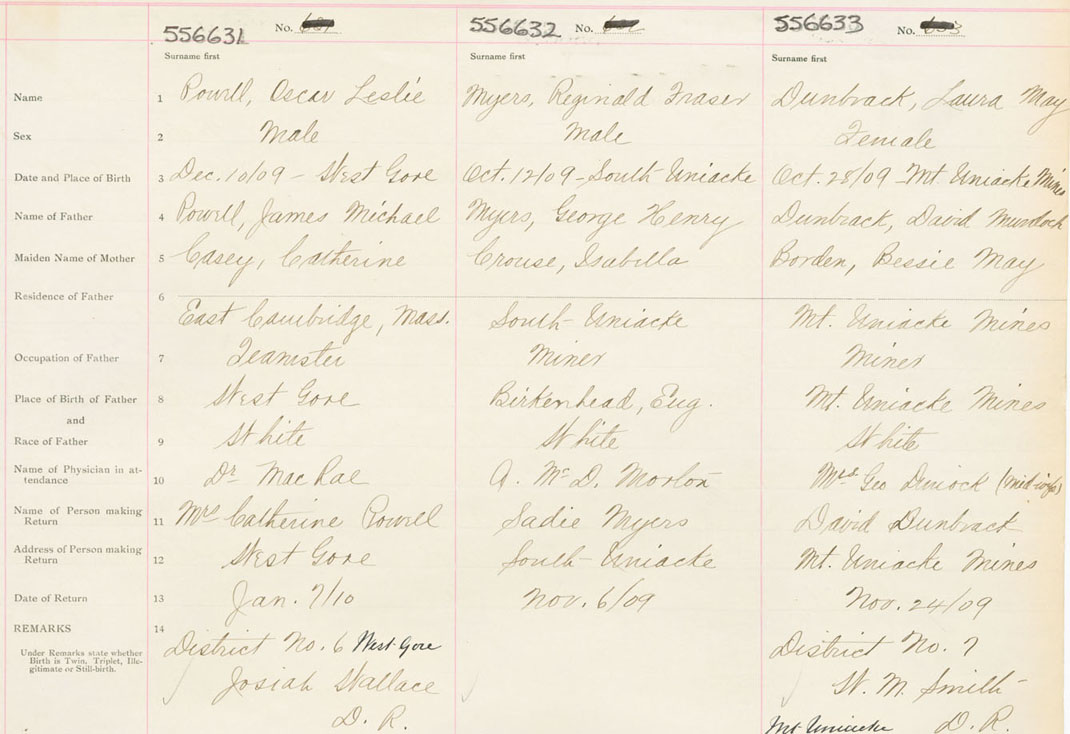 556631 No. 556632 No. 556633 No.
Surname first Surname first Surname first
Name 1 Powell, Oscar Leslie Myers, Reginald Fraser Dunbrack, Laura May
Sex 2 Male Male Female
Date and Place of Birth 3 Dec. 10/09 - West Gore Oct. 12/09 - South Uniacke Oct. 28/09 - Mt. Uniacke Mines
Name of Father 4 Powell, James Michael Myers, George Henry Dunbrack, David Murdoch
Maiden Name of Mother 5 Casey, Catherine Crouse, Isabella Borden, Bessie May
Residence of Father 6
East Cambridge, Mass. South Uniacke Mt. Uniacke Mines
Occupation of Father 7 Teamster Miner Miner
Place of Birth of Father 8 West Gore Birkenhead, Eng. Mt. Uniacke Mines
and
Race of Father 9 White White White
Name of Physician in at-
tendance 10 Dr MacRae A. Mc D. Morton Mrs Geo (mid-wife)
Name of Person making
Return 11 Mrs Catherine Powell Sadie Myers David Dunbrack
Address of Person making
Return 12 West Gore South Uniacke Mt. Uniacke Mines
Date of Return 13 Jan. 7/10 Nov. 6/09 Nov. 24/09
REMARKS 14
District No. 6 West Gore District No. 7
Under Remarks state whether
Birth is Twin, Triplet, Ille-
gitimate or Still-birth.
Josiah Wallace W. M. Smith
D. R. Mt. Uniacke D. R.